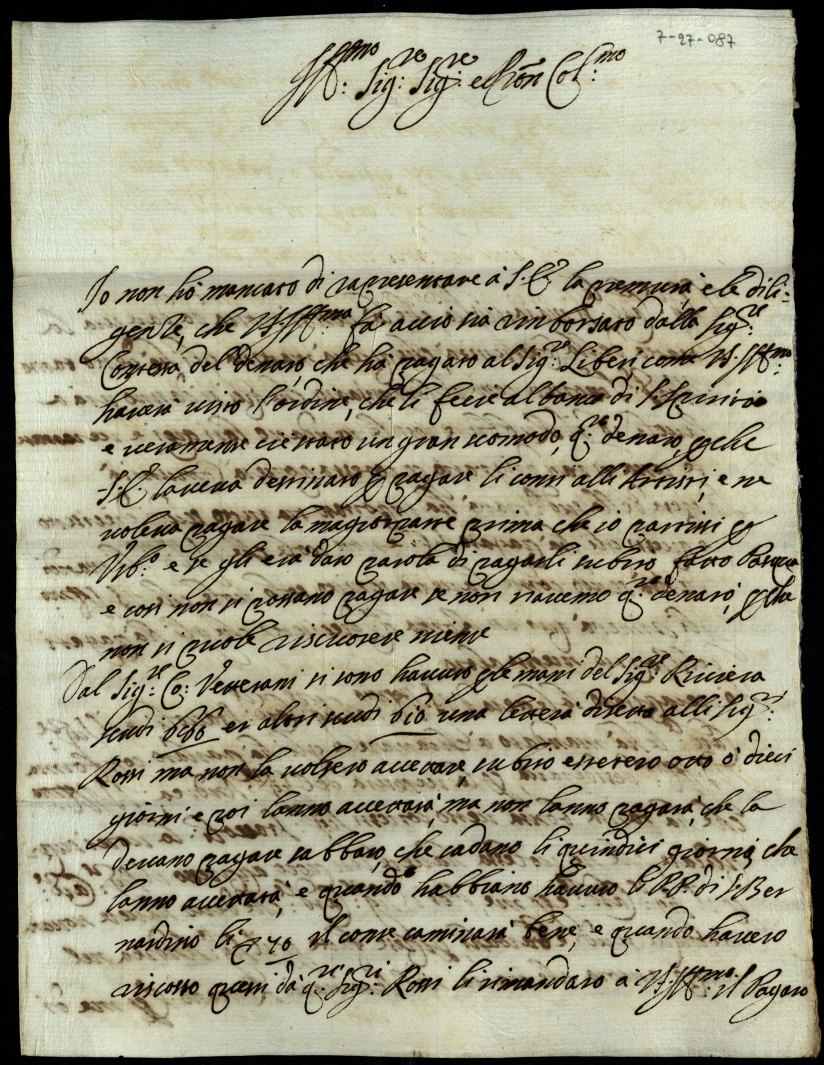 7-27-087
Ill:mo Sig:re Sig:re e Pron Col:mo
Io non hò mancato di rapresentare à S. E. la premura, e le dili-
genze, che V. Ill:ma fà acciò sia rimborsato dalla Sig:re
Contessa del denaro, che hà pagato al Sig:r Liberi come V. Ill:ma
haverà visto l'ordine, che li fecie al banco di S. Spirito
e veramente cie stato un gran scomodo, q:to denaro, perche
S. E. l'aveva destinato per pagare li conti alli Artisti, e ne
voleva pagare la magior parte prima che io partissi per
Urb:o e se gli era dato parola di pagarli subito fatto Pasqua
e cosi non si possano pagare se non riavemo q:to denaro, perche
non si puole riscuotere niente
Dal Sig:re Co: Veterani si sono havuto per le mani del Sig:re Riviera
scudi et altri scudi una lettera diretta alli Sig:ri
Rossi ma non la volsero accettare, subito stettero otto ò dieci
giorni e poi lanno accettata, ma non lanno pagata, che la
devano pagare sabbato, che cadano li quindici giorni, che
lanno accettata, e quando habbiano havuto li PP. di S. Ber
nardino li 70 il conto caminarà bene, e quando havero
riscosso questi da q:ti Sig:ri Rossi li rimandaro à V. Ill:ma il Pagato